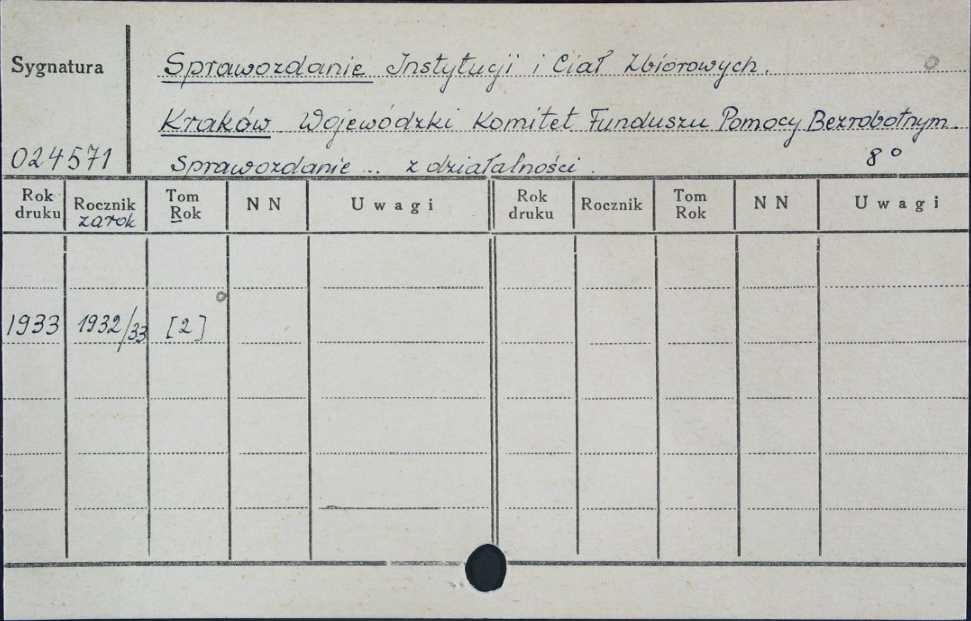 Sygnatura
Sprawozdanie Instytucji i Ciał Zbiorowych.
Kraków Wojewódzki Komitet Funduszu Pomocy Bezrobotnym.
024571
Sprawozdanie ... z działalności.
8°
Rok druku Rocznik za rok Tom Rok N N Uwagi Rok druku Rocznik Tom Rok N N Uwagi
1933 1932/33 [2]